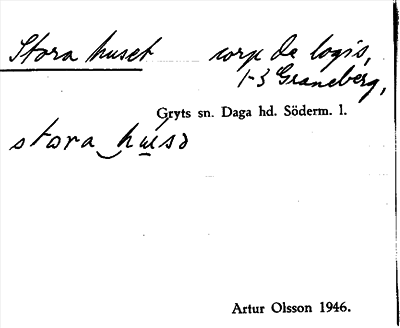 Stora huset corp de logis,
1-3 Graneberg,
Gryts sn. Daga hd. Söderm. l.
stora husə
Artur Olsson 1946.